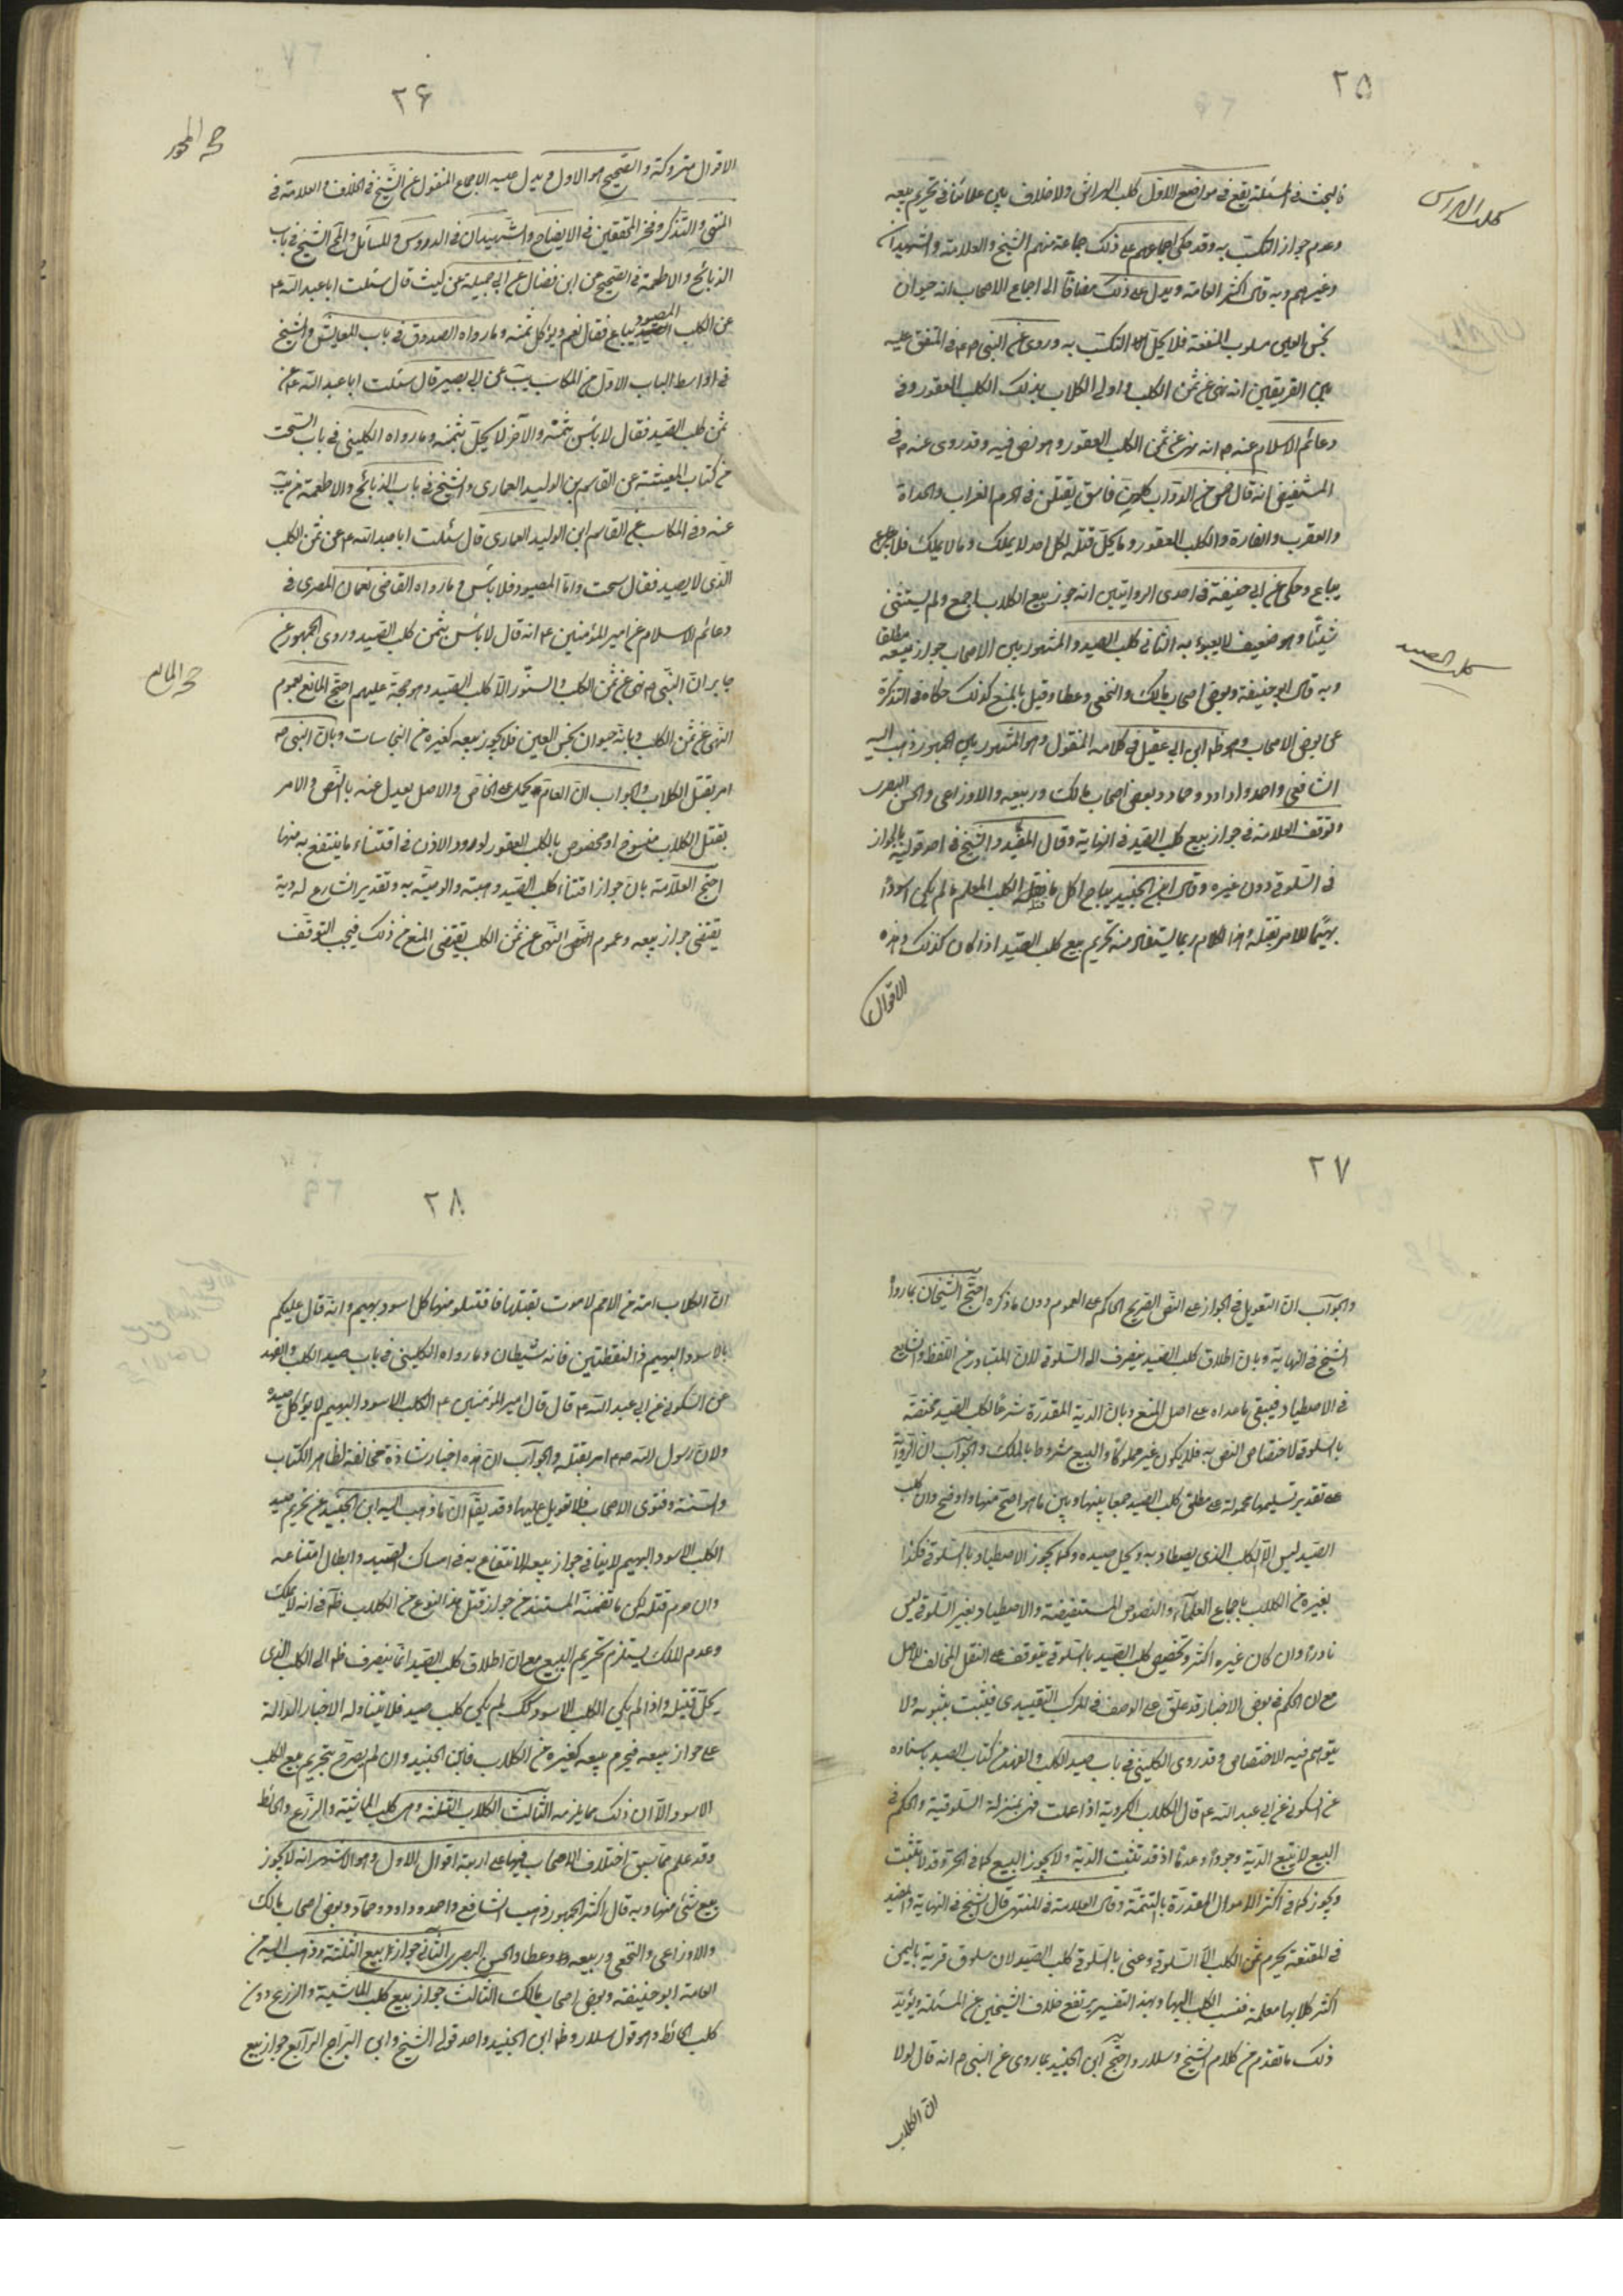 ۲۵
كلب الهراش
فالبحث في المسئلة يقع في مواضع الاول كلب الهراش ولا خلاف بين علمائنا في تحريم بيعه
وعدم جواز التكسب به وقد حكى اجماعهم على ذلك جماعة منهم الشيخ والعلامة والشهيدان
وغيرهم وبه قال اكثر العامة ويدل على ذلك مضافا الى اجماع الاصحاب انه حيوان
نجس العين مسلوب المنفعة فلا يحل التكسب به وروى عن النبي ص في المتفق عليه
بين الفريقين انه نهى عن ثمن الكلب واولى الكلاب بذلك الكلب العقور وفي
دعائم الاسلام عنه ص انه نهى عن ثمن الكلب العقور وهو نص فيه وقد روى عنه ص في
المستفيض انه قال خمس من الدواب كلهن فاسق يقتلن في الحرم الغراب والحداة
والعقرب والفارة والكلب العقور وما يحل قتله لكل احد لا يملك وما لا يملك فلا
يباع وحكى عن ابي حنيفة في احدى الروايتين انه جوز بيع الكلاب اجمع ولم يستثنى
شيئا وهو ضعيف لا يعبوء به الثاني كلب الصيد والمشهور بين الاصحاب جواز بيعه مطلقا
كلب الصيد
وبه قال ابو حنيفة وبعض اصحاب مالك والنخعي وعطا وقيل بالمنع كذلك حكاه في التذكرة
عن بعض الاصحاب وهو ظ ابن ابي عقيل في كلامه المنقول وهو المشهور بين الجمهور ذهب اليه
الشافعي واحمد وداود وحماد وبعض اصحاب مالك وربيعه والاوزاعي والحسن البصرى
وتوقف العلامة في جواز بيع كلب الصيد في النهاية وقال المفيد والشيخ في احد قوليه بالجواز
في السلوقي دون غيره وقال ابن الجنيد يباح اكل ما قتله الكلب المعلم ما لم يكن اسودا
بهيما للامر بقتله وهذا الكلام ربما يستفاد منه تحريم بيع كلب الصيد اذا كان كذلك وهذه
الاقوال
۲۶
الاقوال متروكة والصحيح هو الاول ويدل عليه الاجماع المنقول عن الشيخ في الخلاف والعلامة في
المنتهى والتذكرة وفخر المحققين في الايضاح والشهيدان في الدروس والمسائل الشيخ في باب
الذبائح والاطعمة في الصحيح عن ابن فضال عن ابي جميلة عن ليث قال سئلت ابا عبد الله ع
عن الكلب الصيود يباع فقال نعم ويؤكل ثمنه وما رواه الصدوق في باب المعايش والشيخ
في اواسط الباب الاول من المكاسب عن ابي بصير قال سئلت ابا عبد الله ع عن
ثمن كلب الصيد فقال لا باس بثمنه والآخر لا يحل بثمنه وما رواه الكليني في باب السحت
من كتاب المعيشة عن القاسم بن الوليد العماري والشيخ في باب الذبائح والاطعمة من يب
عنه وفي المكاسب عن القاسم ابن الوليد العماري قال سئلت ابا عبد الله ع عن ثمن الكلب
الذى لا يصيد فقال سحت واما الصيود فلا باس وما رواه القاضي نعمان المصرى في
دعائم الاسلام عن امير المؤمنين ع انه قال لا باس بثمن كلب الصيد وروى الجمهور عن
جابر ان النبي ص نهى عن ثمن الكلب والسنور الا كلب الصيد وهو حجة عليهم احتج المانع بعموم
حجة المانع
النهى عن ثمن الكلب وبانه حيوان نجس العين فلا يجوز بيعه كغيره من النجاسات وبان النبي ص
امر بقتل الكلاب والجواب ان العام يحمل على الخاص والاصل يعدل عنه بالنص والامر
بقتل الكلاب منسوخ او مخصوص بالكلب العقور لورود الاذن في اقتناء ما ينتفع به منها
احتج العلامة بان جواز اقتناء كلب الصيد وهبته والوصية به وتقدير الشارع له دية
يقتضى جواز بيعه وعموم النهى عن ثمن الكلب يقتضى المنع من ذلك فيجب التوقف
۲۷
والجواب ان التعويل في الجواز على النص الصريح الحاكم على العموم دون ما ذكره احتج الشيخان بما رواه
الشيخ في النهاية وبان اطلاق كلب الصيد ينصرف الى السلوقي لان المتبادر من اللفظ والشايع
في الاصطياد فيبقى ما عداه على اصل المنع وبان الدية المقدرة شرعا لكلب الصيد مختصة
بالسلوقي لاختصاص النص به فلا يكون غير مملوكا والبيع مشروط بالملك والجواب ان الرواية
على تقدير تسليمها محمولة على مطلق كلب الصيد جمعا بينها وبين ما هو اصح منها واوضح وان كلب
الصيد ليس الا الكلب الذى يصطاد به ويحل صيده وكما يجوز الاصطياد بالسلوقي فكذا
بغيره من الكلاب باجماع العلماء والنصوص المستفيضة والاصطياد بغير السلوقي ليس
نادرا وان كان غيره اكثر وتخصيص كلب الصيد بالسلوقي يتوقف على النقل المخالف للاصل
مع ان الحكم في بعض الاخبار قد علق على الوصف في المركب التقييدى فيثبت بثبوته ولا
يتوهم فيه الاختصاص وقد روى الكليني في باب صيد الكلب والفهد من كتاب الصيد باسناده
عن السكوني عن ابي عبد الله ع قال الكلاب الكردية اذا علمت فهى بمنزلة السلوقية والحكم في
البيع لا يتبع الدية وجودا وعدما اذ قد تثبت الدية ولا يجوز البيع كما في الحر وقد لا تثبت
ويجوز كما في اكثر الاموال المقدرة بالقيمة وقال العلامة في المنتهى قال الشيخ في النهاية والمفيد
في المقنعة يحرم ثمن الكلب الا السلوقي وعنى بالسلوقي كلب الصيد لان سلوق قرية باليمن
اكثر كلابها معلمة فنسب الكلب اليها وبهذا التفسير يرتفع خلاف الشيخين عن المسئلة ويؤيد
ذلك ما تقدم من كلام الشيخ وسلار واحتج ابن الجنيد بما روى عن النبي ص انه قال لولا
ان الكلاب
۲۸
ان الكلاب امة من الامم لامرت بقتلها فاقتلو منها كل اسود بهيم وانه قال عليكم
بالاسود البهيم ذى النقطتين فانه شيطان وما رواه الكليني في باب صيد الكلب والفهد
عن السكوني عن ابي عبد الله ع قال قال امير المؤمنين ع الكلب الاسود البهيم لا يؤكل صيده
ولان رسول الله ص امر بقتله والجواب ان هذه اخبار شاذة مخالفة لظاهر الكتاب
والسنة وفتوى الاصحاب فلا تعويل عليها وقد يقال ان ما ذهب اليه ابن الجنيد من تحريم صيد
الكلب الاسود البهيم لا ينافي جواز بيعه للانتفاع به في امساك الصيد وابطال امتناعه
وان حرم قتله لكن ما تضمنه المستند من جواز قتل هذا النوع من الكلاب ظاهر في انه لا يملك
وعدم الملك يستلزم تحريم البيع مع ان اطلاق كلب الصيد انما ينصرف ظ الى الكلب الذى
يحل قتيله واذا لم يكن الكلب الاسود كك لم يكن كلب صيد فلا يتناوله الاخبار الدالة
على جواز بيعه فيحرم بيعه كغيره من الكلاب فابن الجنيد وان لم يصرح بتحريم بيع الكلب
الاسود الا ان ذلك مما يلزمه الثالث الكلاب الثلثة وهى كلب الماشية والزرع والحائط
وقد علم مما سبق اختلاف الاصحاب فيها على اربعة اقوال الاول وهو الاشهر انه لا يجوز
بيع شئ منها وبه قال اكثر الجمهور ذهب الشافعي واحمد وداود وحماد وبعض اصحاب مالك
والاوزاعي والنخعي وربيعه وعطا والحسن البصرى الثاني جواز بيع الثلثة وذهب اليه من
العامة ابو حنيفة وبعض اصحاب مالك الثالث جواز بيع كلب الماشية والزرع دون
كلب الحائط وهو قول سلار وظ ابن الجنيد واحد قولى الشيخ وابن البراج الرابع جواز بيع